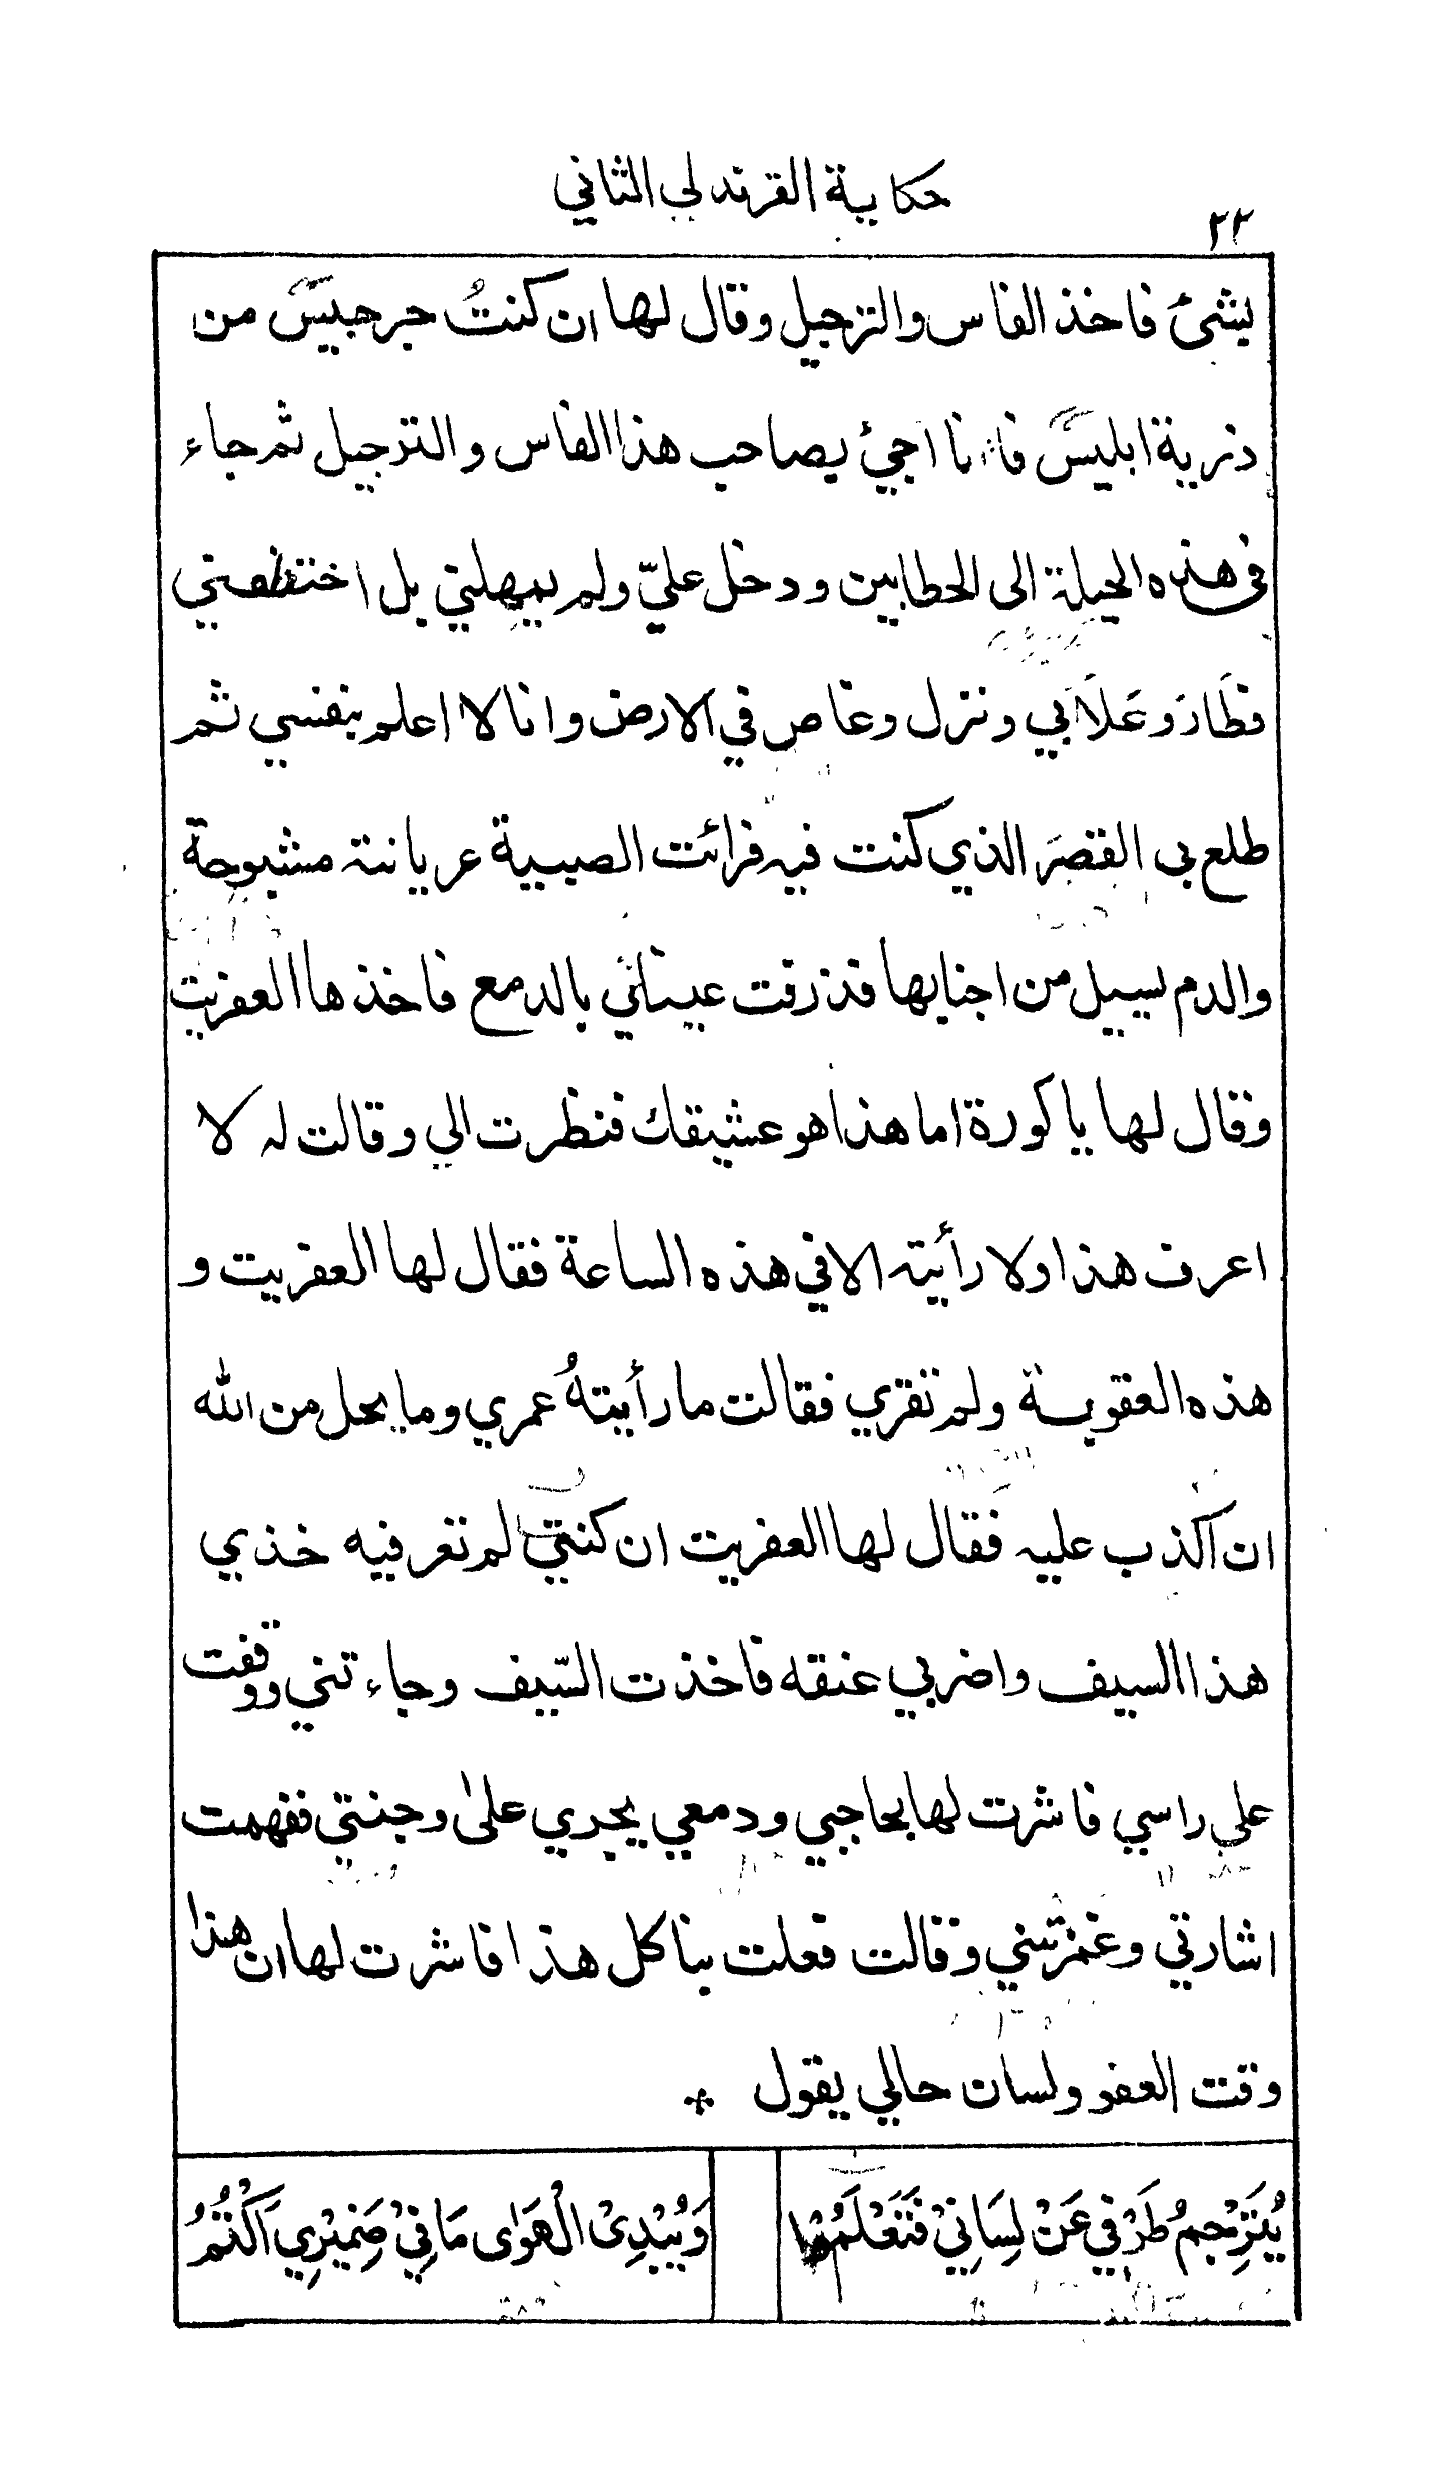 حكاية القرندلي الثاني
٢٢
بشئ فاخذ الفاس والترجيل وقال لها ان كنتُ جرجيسَ من
ذرية ابليسَ فانا اجيْ بصاحب هذا الفاس والترجيل ثم جاء
في هذه الحيلة الى الحطابين ودخل عليّ ولم يمهلني بل اختطفني
فطَارَ وعَلَا بي ونزل وغاص في الارض وانا لا اعلم بنفسي ثم
طلع بي القصَر الذي كنت فيه فرائت الصبية عريانة مشبوحة
والدم يسيل من اجنابها فذرفت عيناني بالدمع فاخذها العفريت
وقال لها يا كورة اما هذا هو عشيقك فنظرت الي وقالت له لا
اعرف هذا ولا رأيته الا في هذه الساعة فقال لها العفريت و
هذه العقوبة ولم تقري فقالت ما رأيتهُ عمري وما يحل من الله
ان اكذب عليه فقال لها العفريت ان كنتي لم تعرفيه خذي
هذا السيف واضربي عنقه فاخذت السّيف وجاءتني ووقفت
علي راسي فاشرت لها بحاجبي ودمعي يجري علىٰ وجنتي ففهمت
اشارتي وغمزتني وقالت فعلت بنا كل هذا فاشرت لها ان هذا
وقت العفو ولسان حالي يقول
يُتَرْجِمُ طَرْفِي عَنْ لِسَانِيْ فَتَعْلَمُوا
وَيُبْدِىْ الْهَوٰى مَا فِيْ ضَمِيْرِي اَكْتُمُ